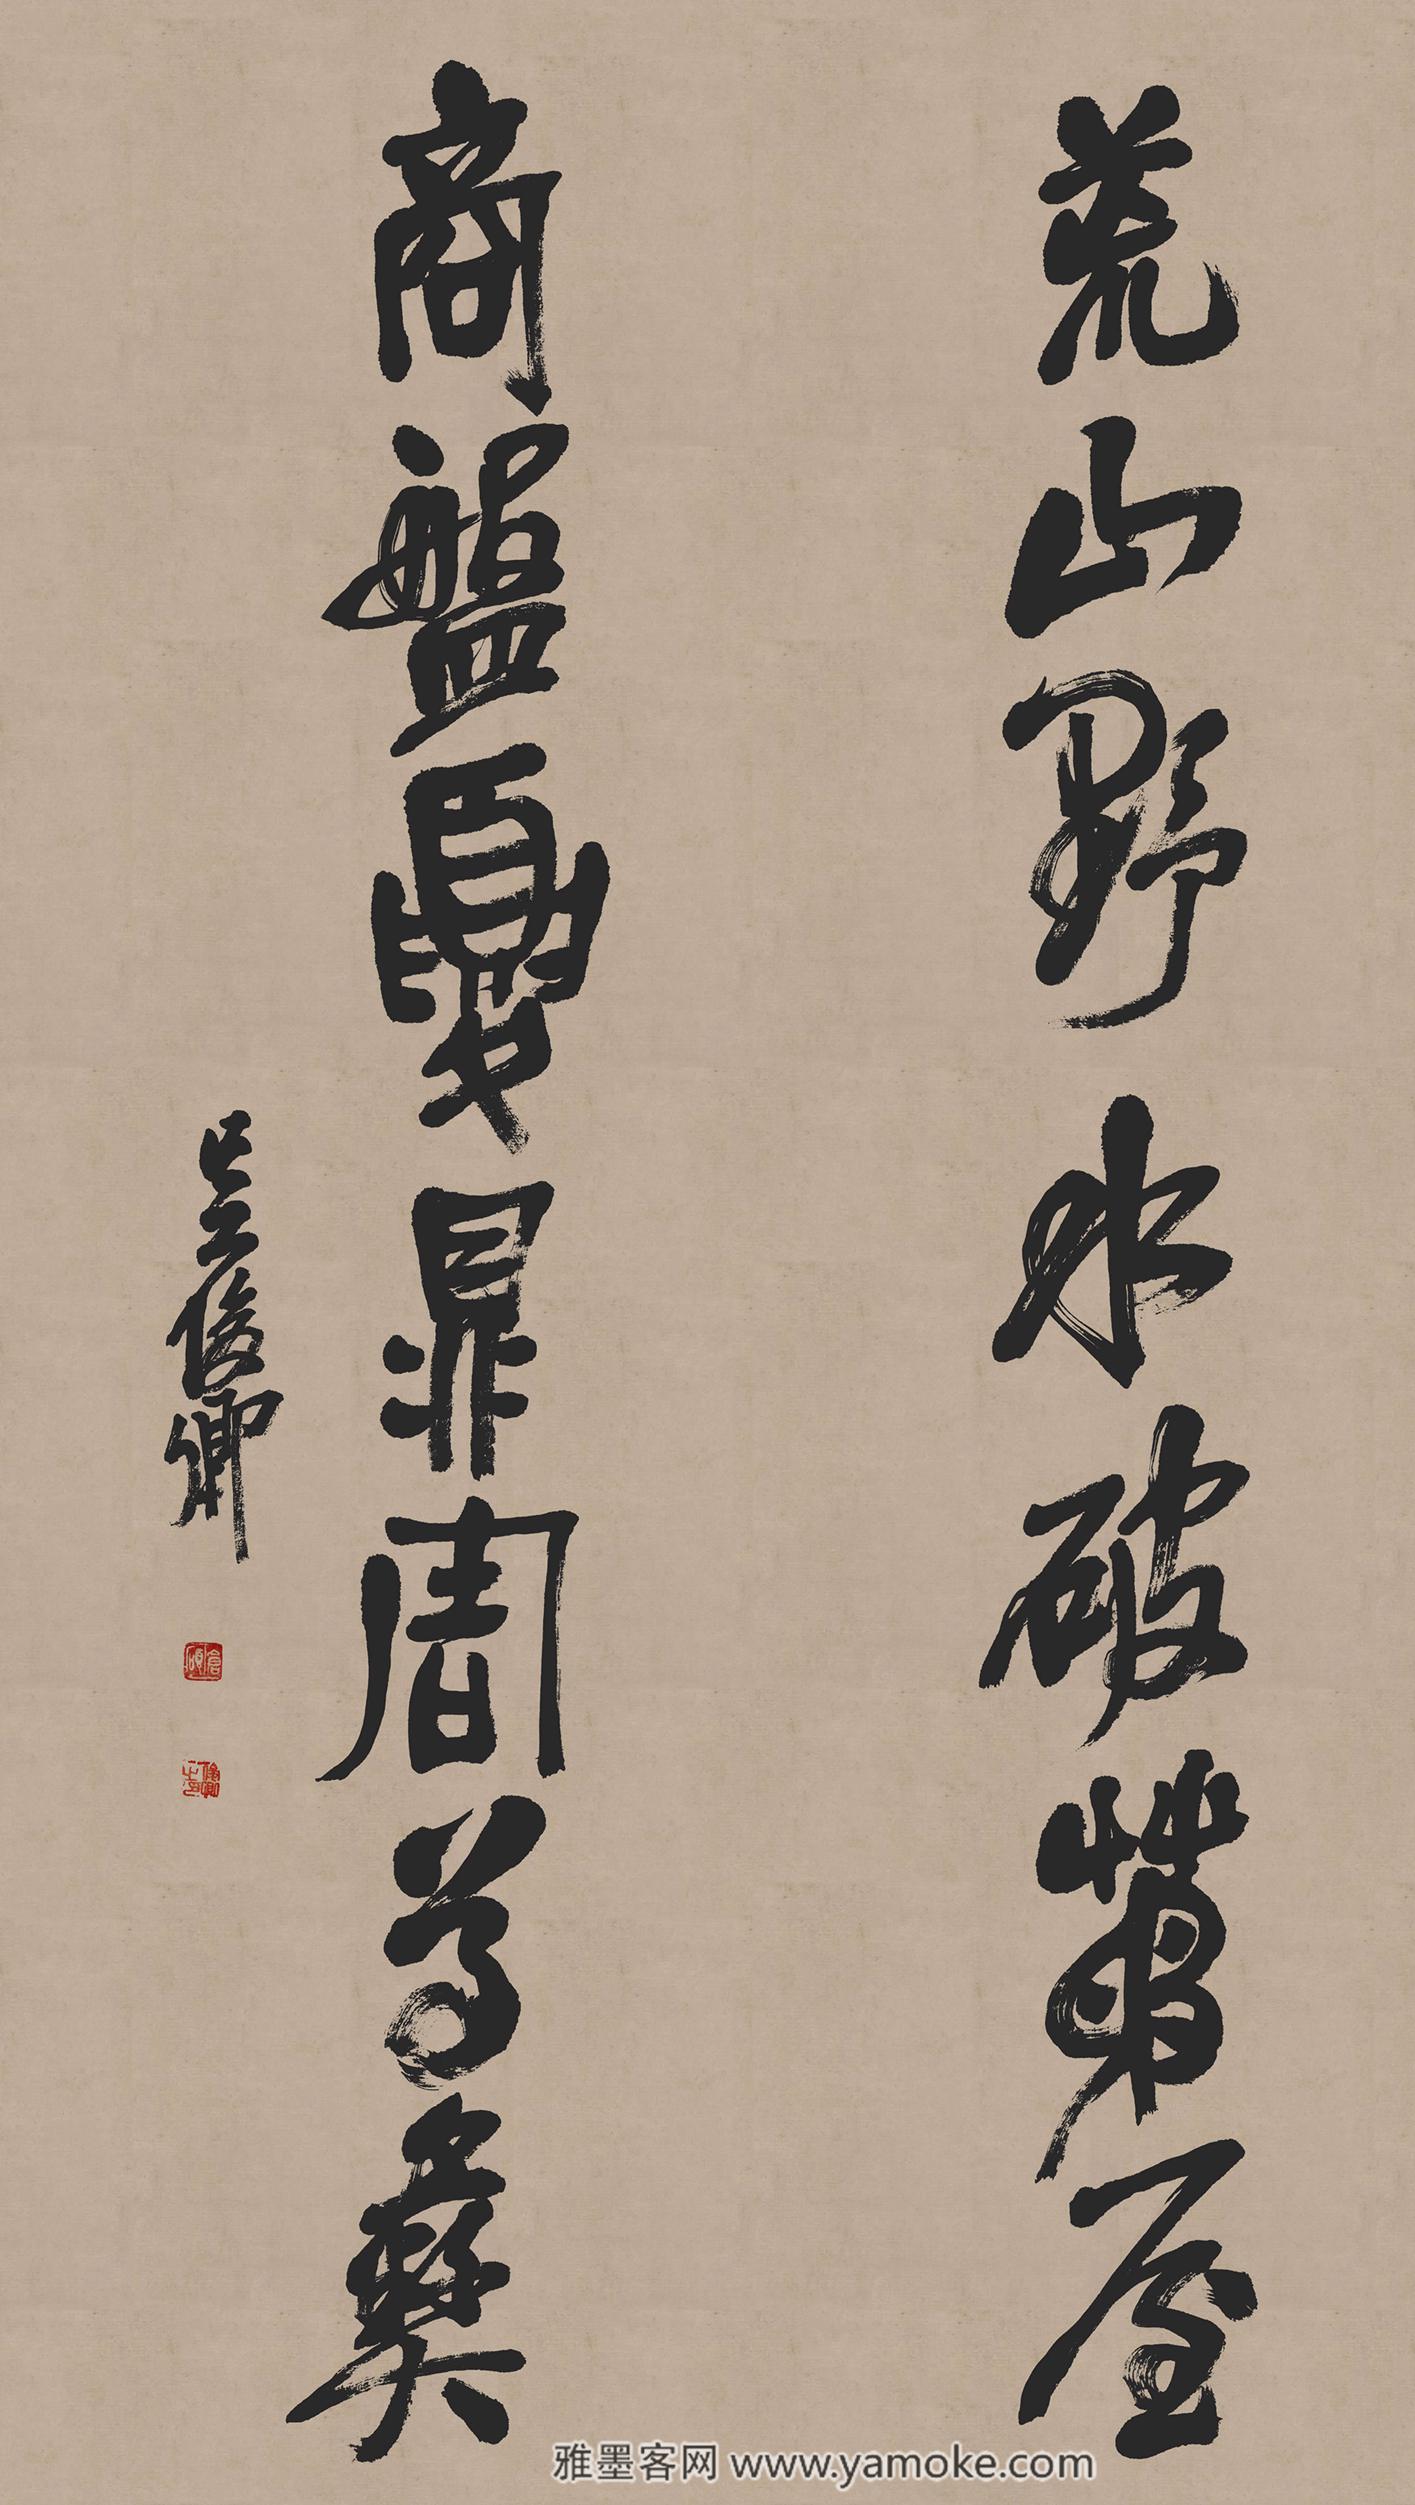 荒山野水破茅屋
商盤夏鼎周尊彝
吳俊卿
倉碩
俊卿之印
雅墨客网 www.yamoke.com